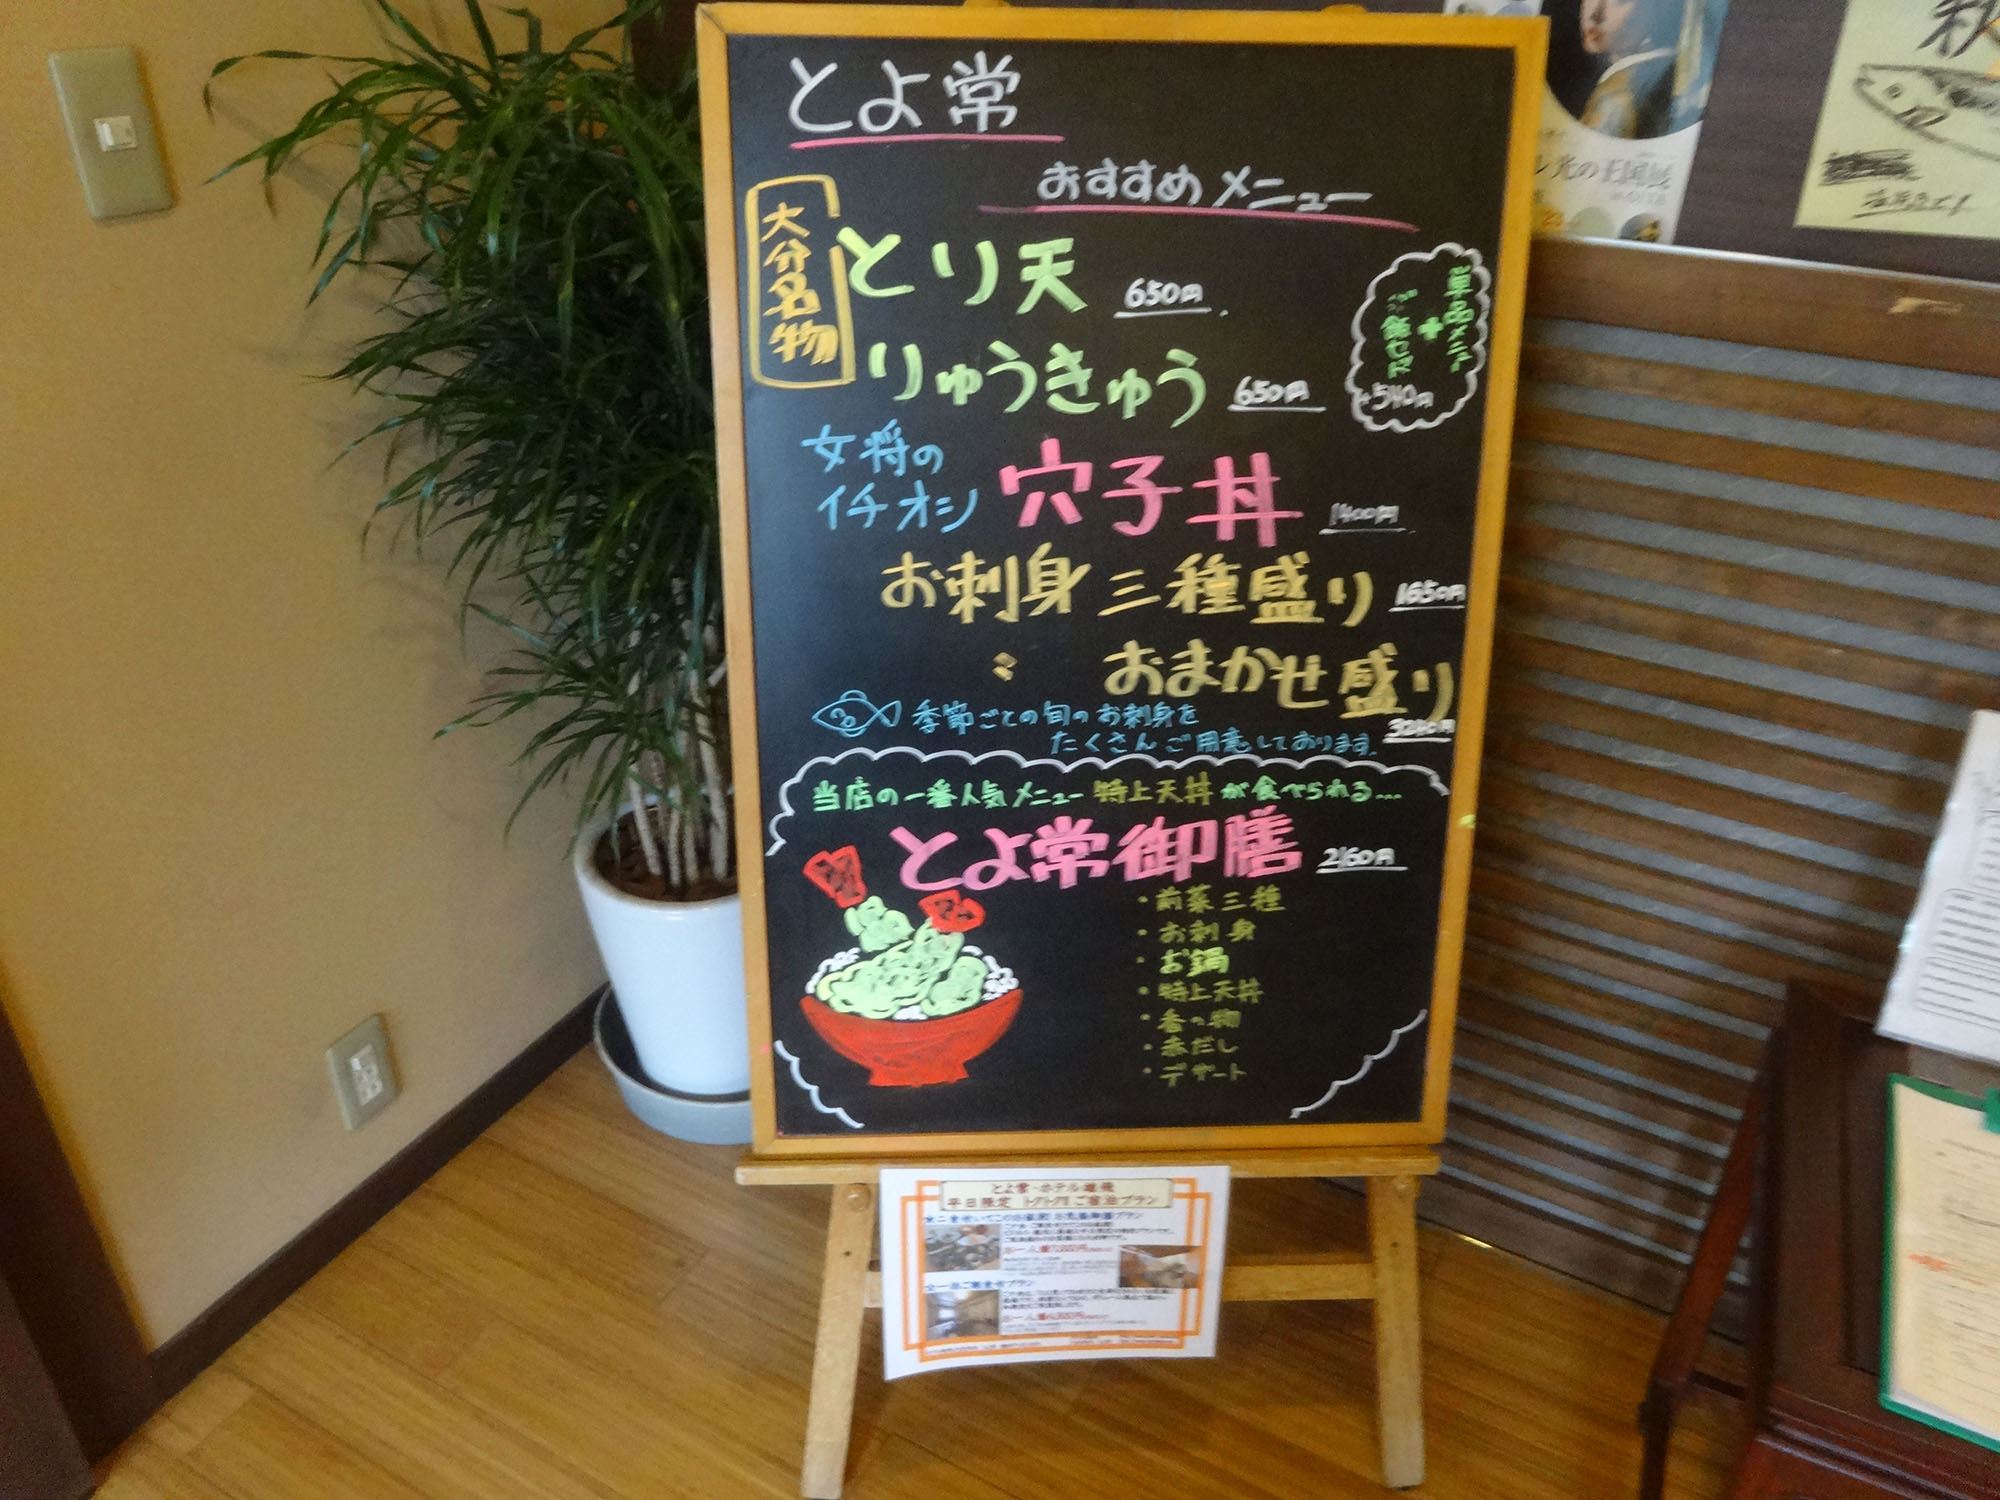 とよ常
おすすめメニュー
大分名物
とり天 650円
りゅうきゅう 650円
単品メニュー
+
ご飯セット
+540円
女将の
イチオシ
穴子丼 1400円
お刺身三種盛り 1650円
〃 おまかせ盛り
3240円
季節ごとの旬のお刺身を
たくさんご用意しております。
当店の一番人気メニュー 特上天丼が食べられる...
とよ常御膳 2160円
・前菜三種
・お刺身
・お鍋
・特上天丼
・香の物
・赤だし
・デザート
とよ常・ホテル雄飛
平日限定 トクトク!! ご宿泊プラン
光の王国展
秋